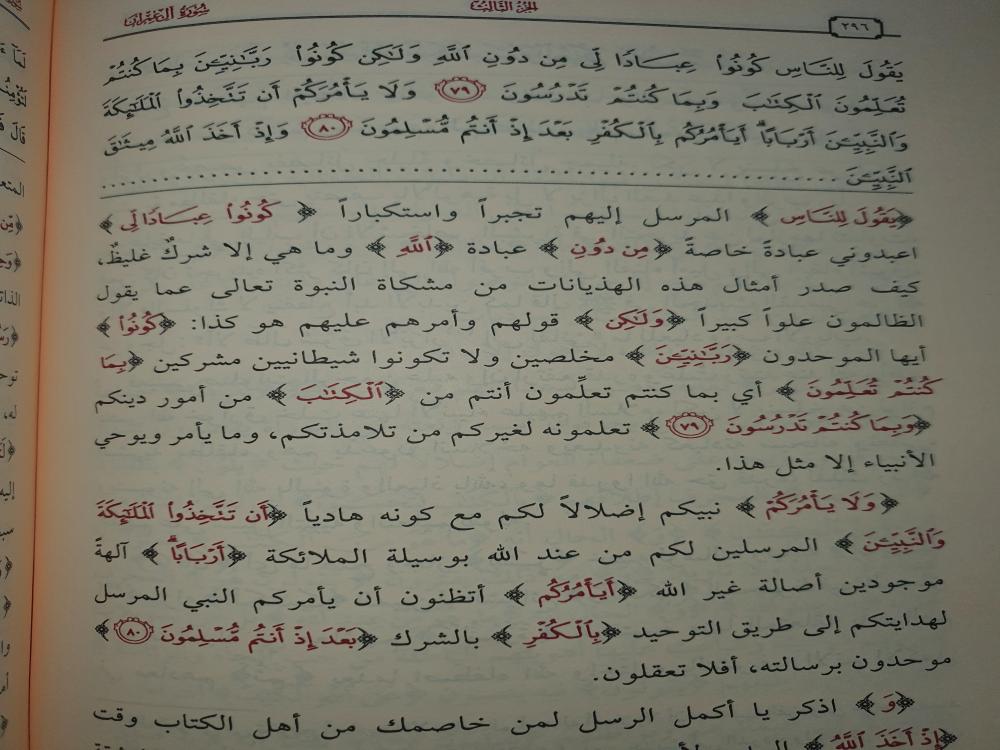 سورة آل عمران
الجزء الثالث
٢٩٦
يَقُولَ لِلنَّاسِ كُونُوا۟ عِبَادًا لِّى مِن دُونِ ٱللَّهِ وَلَـٰكِن كُونُوا۟ رَبَّـٰنِيِّـۧنَ بِمَا كُنتُمْ
تُعَلِّمُونَ ٱلْكِتَـٰبَ وَبِمَا كُنتُمْ تَدْرُسُونَ ٧٩ وَلَا يَأْمُرَكُمْ أَن تَتَّخِذُوا۟ ٱلْمَلَـٰٓئِكَةَ
وَٱلنَّبِيِّـۧنَ أَرْبَابًا ۗ أَيَأْمُرُكُم بِٱلْكُفْرِ بَعْدَ إِذْ أَنتُم مُّسْلِمُونَ ٨٠ وَإِذْ أَخَذَ ٱللَّهُ مِيثَـٰقَ
ٱلنَّبِيِّـۧنَ ........................................
﴿يَقُولَ لِلنَّاسِ﴾ المرسل إليهم تجبراً واستكباراً ﴿كُونُوا۟ عِبَادًا لِّى﴾
اعبدوني عبادةً خاصةً ﴿مِن دُونِ﴾ عبادة ﴿ٱللَّهِ﴾ وما هي إلا شركٌ غليظٌ،
كيف صدر أمثال هذه الهذيانات من مشكاة النبوة تعالى عما يقول
الظالمون علواً كبيراً ﴿وَلَـٰكِن﴾ قولهم وأمرهم عليهم هو كذا: ﴿كُونُوا۟﴾
أيها الموحدون ﴿رَبَّـٰنِيِّـۧنَ﴾ مخلصين ولا تكونوا شيطانيين مشركين ﴿بِمَا
كُنتُمْ تُعَلِّمُونَ﴾ أي بما كنتم تعلِّمون أنتم من ﴿ٱلْكِتَـٰبَ﴾ من أمور دينكم
﴿وَبِمَا كُنتُمْ تَدْرُسُونَ ٧٩﴾ تعلمونه لغيركم من تلامذتكم، وما يأمر ويوحي
الأنبياء إلا مثل هذا.
﴿وَلَا يَأْمُرَكُمْ﴾ نبيكم إضلالاً لكم مع كونه هادياً ﴿أَن تَتَّخِذُوا۟ ٱلْمَلَـٰٓئِكَةَ
وَٱلنَّبِيِّـۧنَ﴾ المرسلين لكم من عند الله بوسيلة الملائكة ﴿أَرْبَابًا ۗ﴾ آلهةً
موجودين أصالة غير الله ﴿أَيَأْمُرُكُم﴾ أتظنون أن يأمركم النبي المرسل
لهدايتكم إلى طريق التوحيد ﴿بِٱلْكُفْرِ﴾ بالشرك ﴿بَعْدَ إِذْ أَنتُم مُّسْلِمُونَ ٨٠﴾
موحدون برسالته، أفلا تعقلون.
﴿وَ﴾ اذكر يا أكمل الرسل لمن خاصمك من أهل الكتاب وقت
﴿إِذْ أَخَذَ ٱللَّهُ﴾